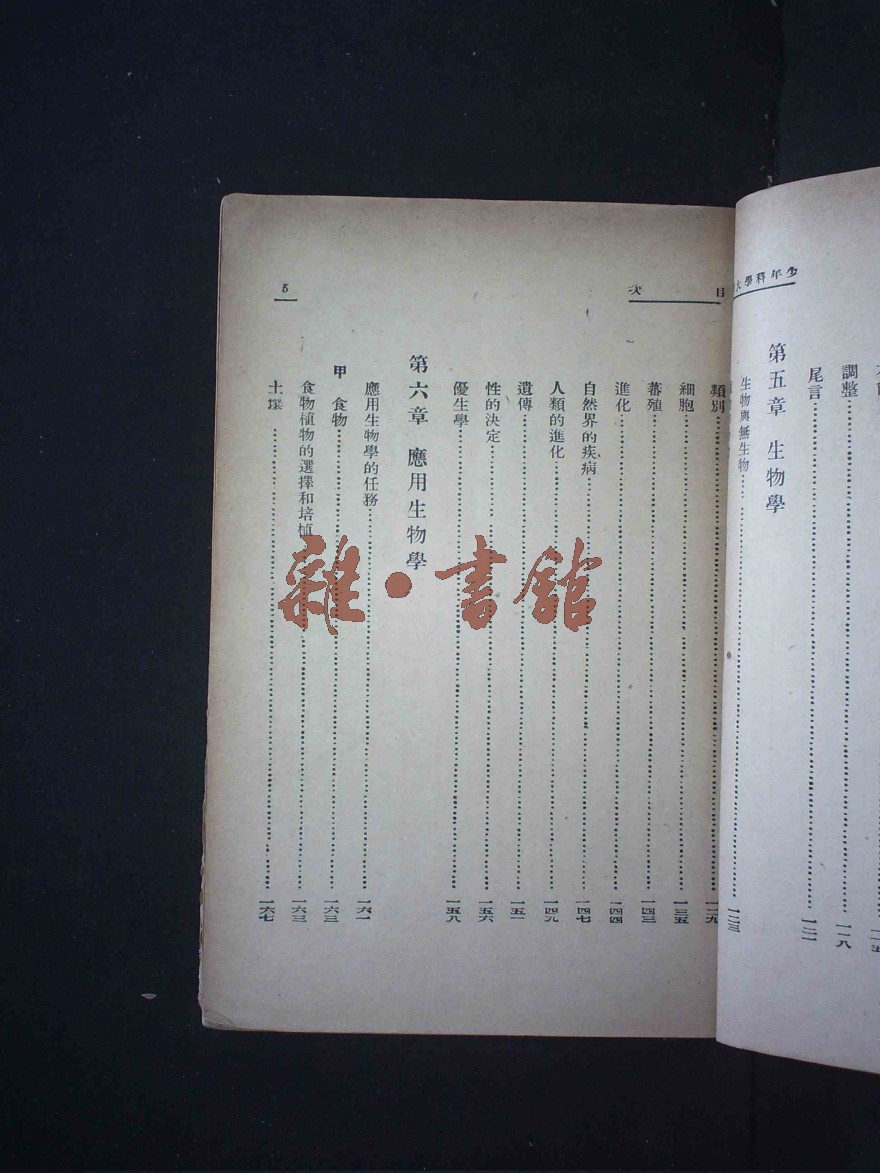 少年科學大
調整……一一八
尾言……一二一
第五章 生物學
生物與無生物……一二三
目次
類別……一二九
細胞……一三五
蕃殖……一四三
進化……一四四
自然界的疾病……一四七
人類的進化……一四九
遺傳……一五一
性的決定……一五六
優生學……一五八
第六章 應用生物學
應用生物學的任務……一六一
甲 食物……一六三
食物植物的選擇和培植……一六三
土壤……一六七
5
雜·書館